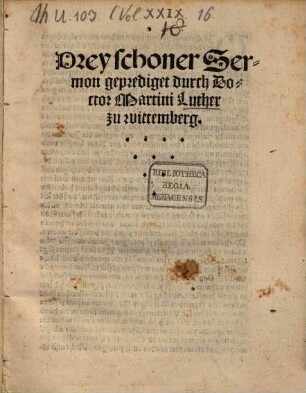 Th U. 103 (Vol XXIX 16
Drey schoner Ser-
mon geprediget durch Do-
ctor Martini Luther
zu wittemberg.
BIBLIOTHECA
REGIA
MONACENSIS.